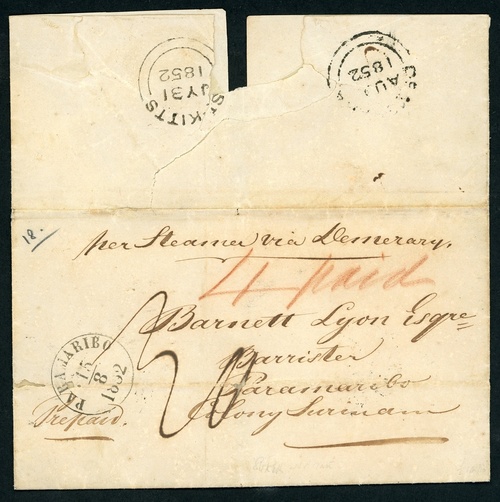 ST KITTS
JY 31
1852
AU
1852
18.
per Steamer via Demerary.
4 paid
Barnett Lyon Esqre
Barrister
Paramaribo
Colony Suriname
PARAMARIBO
15
8
1852
Prepaid.